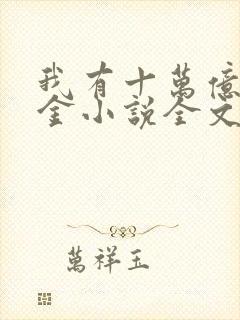 我有十萬億
金小說全文
萬祥玉